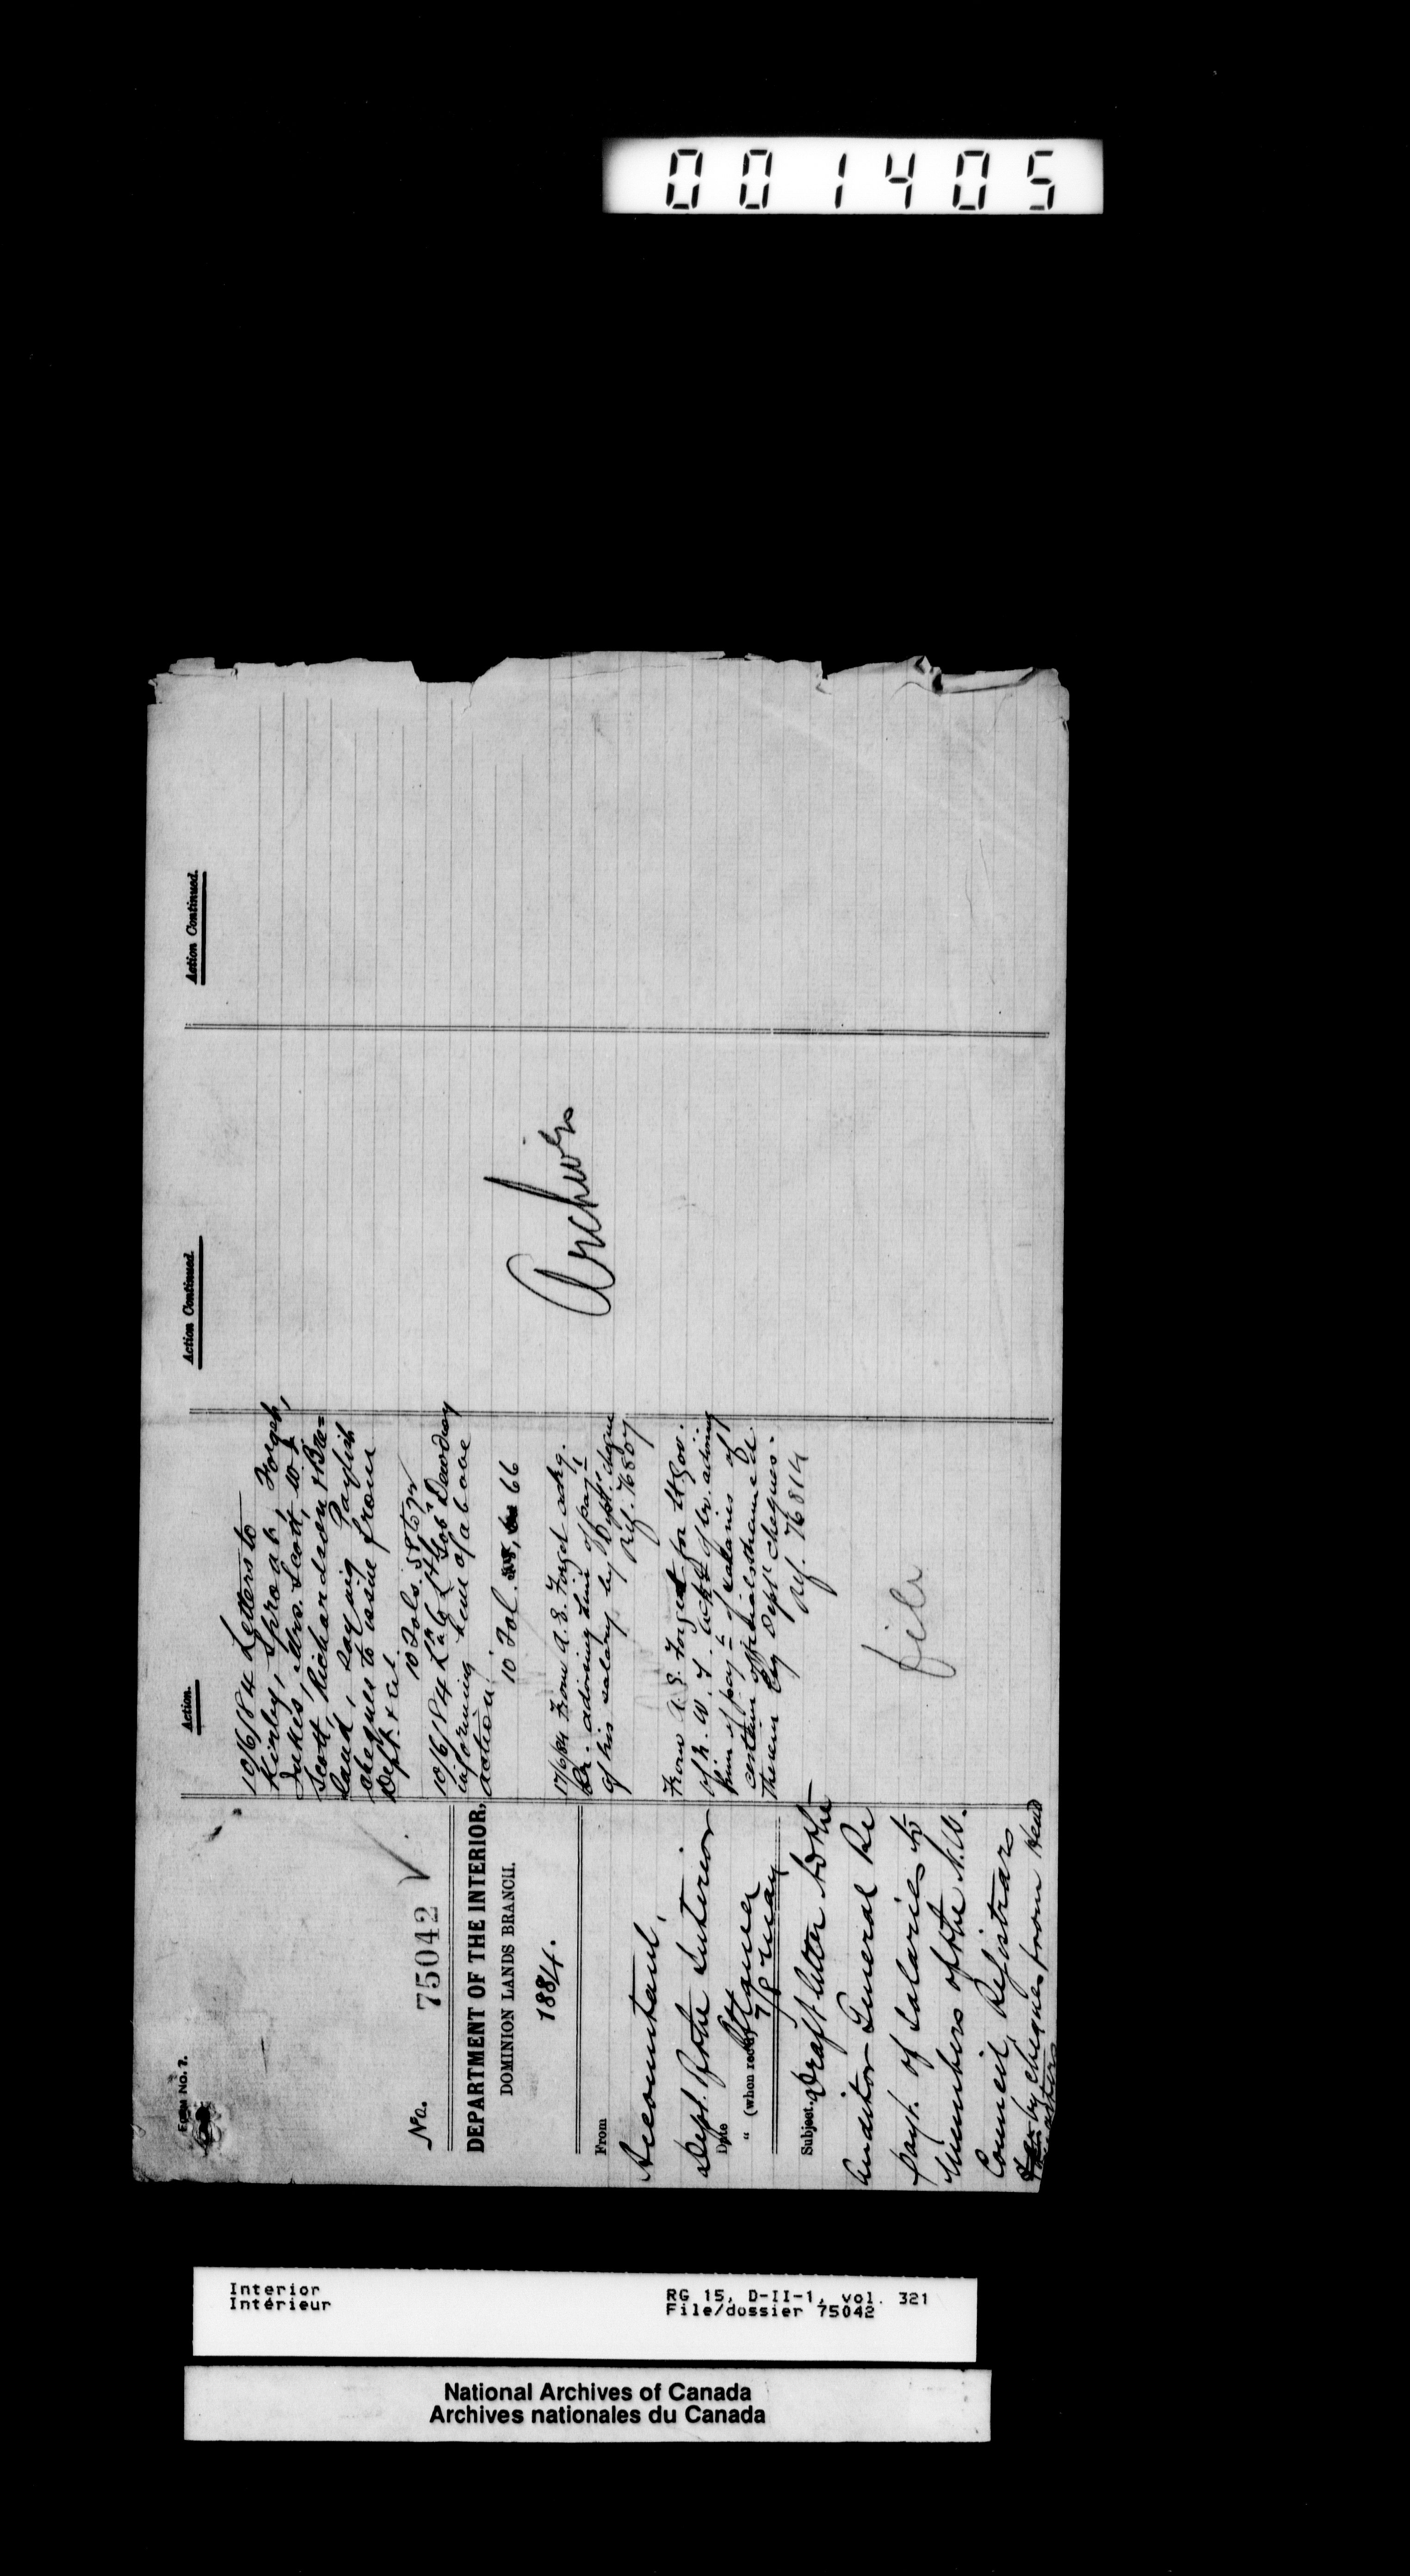 001405
FORM No. 2.
No. 75042
DEPARTMENT OF THE INTERIOR,
DOMINION LANDS BRANCH.
1884.
From
Accountant,
Dept. of the Interior
Date Ottawa
" (when recd)
7/8 May
Subject. Draft letter to the
Auditor General Re
payt. of Salaries to
Members of the N.W.
Council, Registrars
by cheques from Head
Action.
10/6/84 Letters to
Kirby, Sproat, Forget,
Jukes, Mrs. Scott, W. J.
Scott, Richardson & Bre=
land, saying Paylist
cheques to issue from
Dept. &
10 Fols. 58 to
10/6/84 Lr to Lt Gov Dewdney
informing him of above
action.
10 Fol. 66
17/6/84 From A. E. Forget ackg.
Lr. advising him of payt
of his salary by Dept. cheque
Ref. 76807
From A. E. Forget for Lt Gov.
of N. W. T. ackg of lr. advising
him of payt of salaries of
certain officials named
therein by Dept cheques.
Ref. 76814
file
Action Continued.
Archives
Action Continued.
Interior
Intérieur
RG 15, D-II-1, vol. 321
File/dossier 75042
National Archives of Canada
Archives nationales du Canada